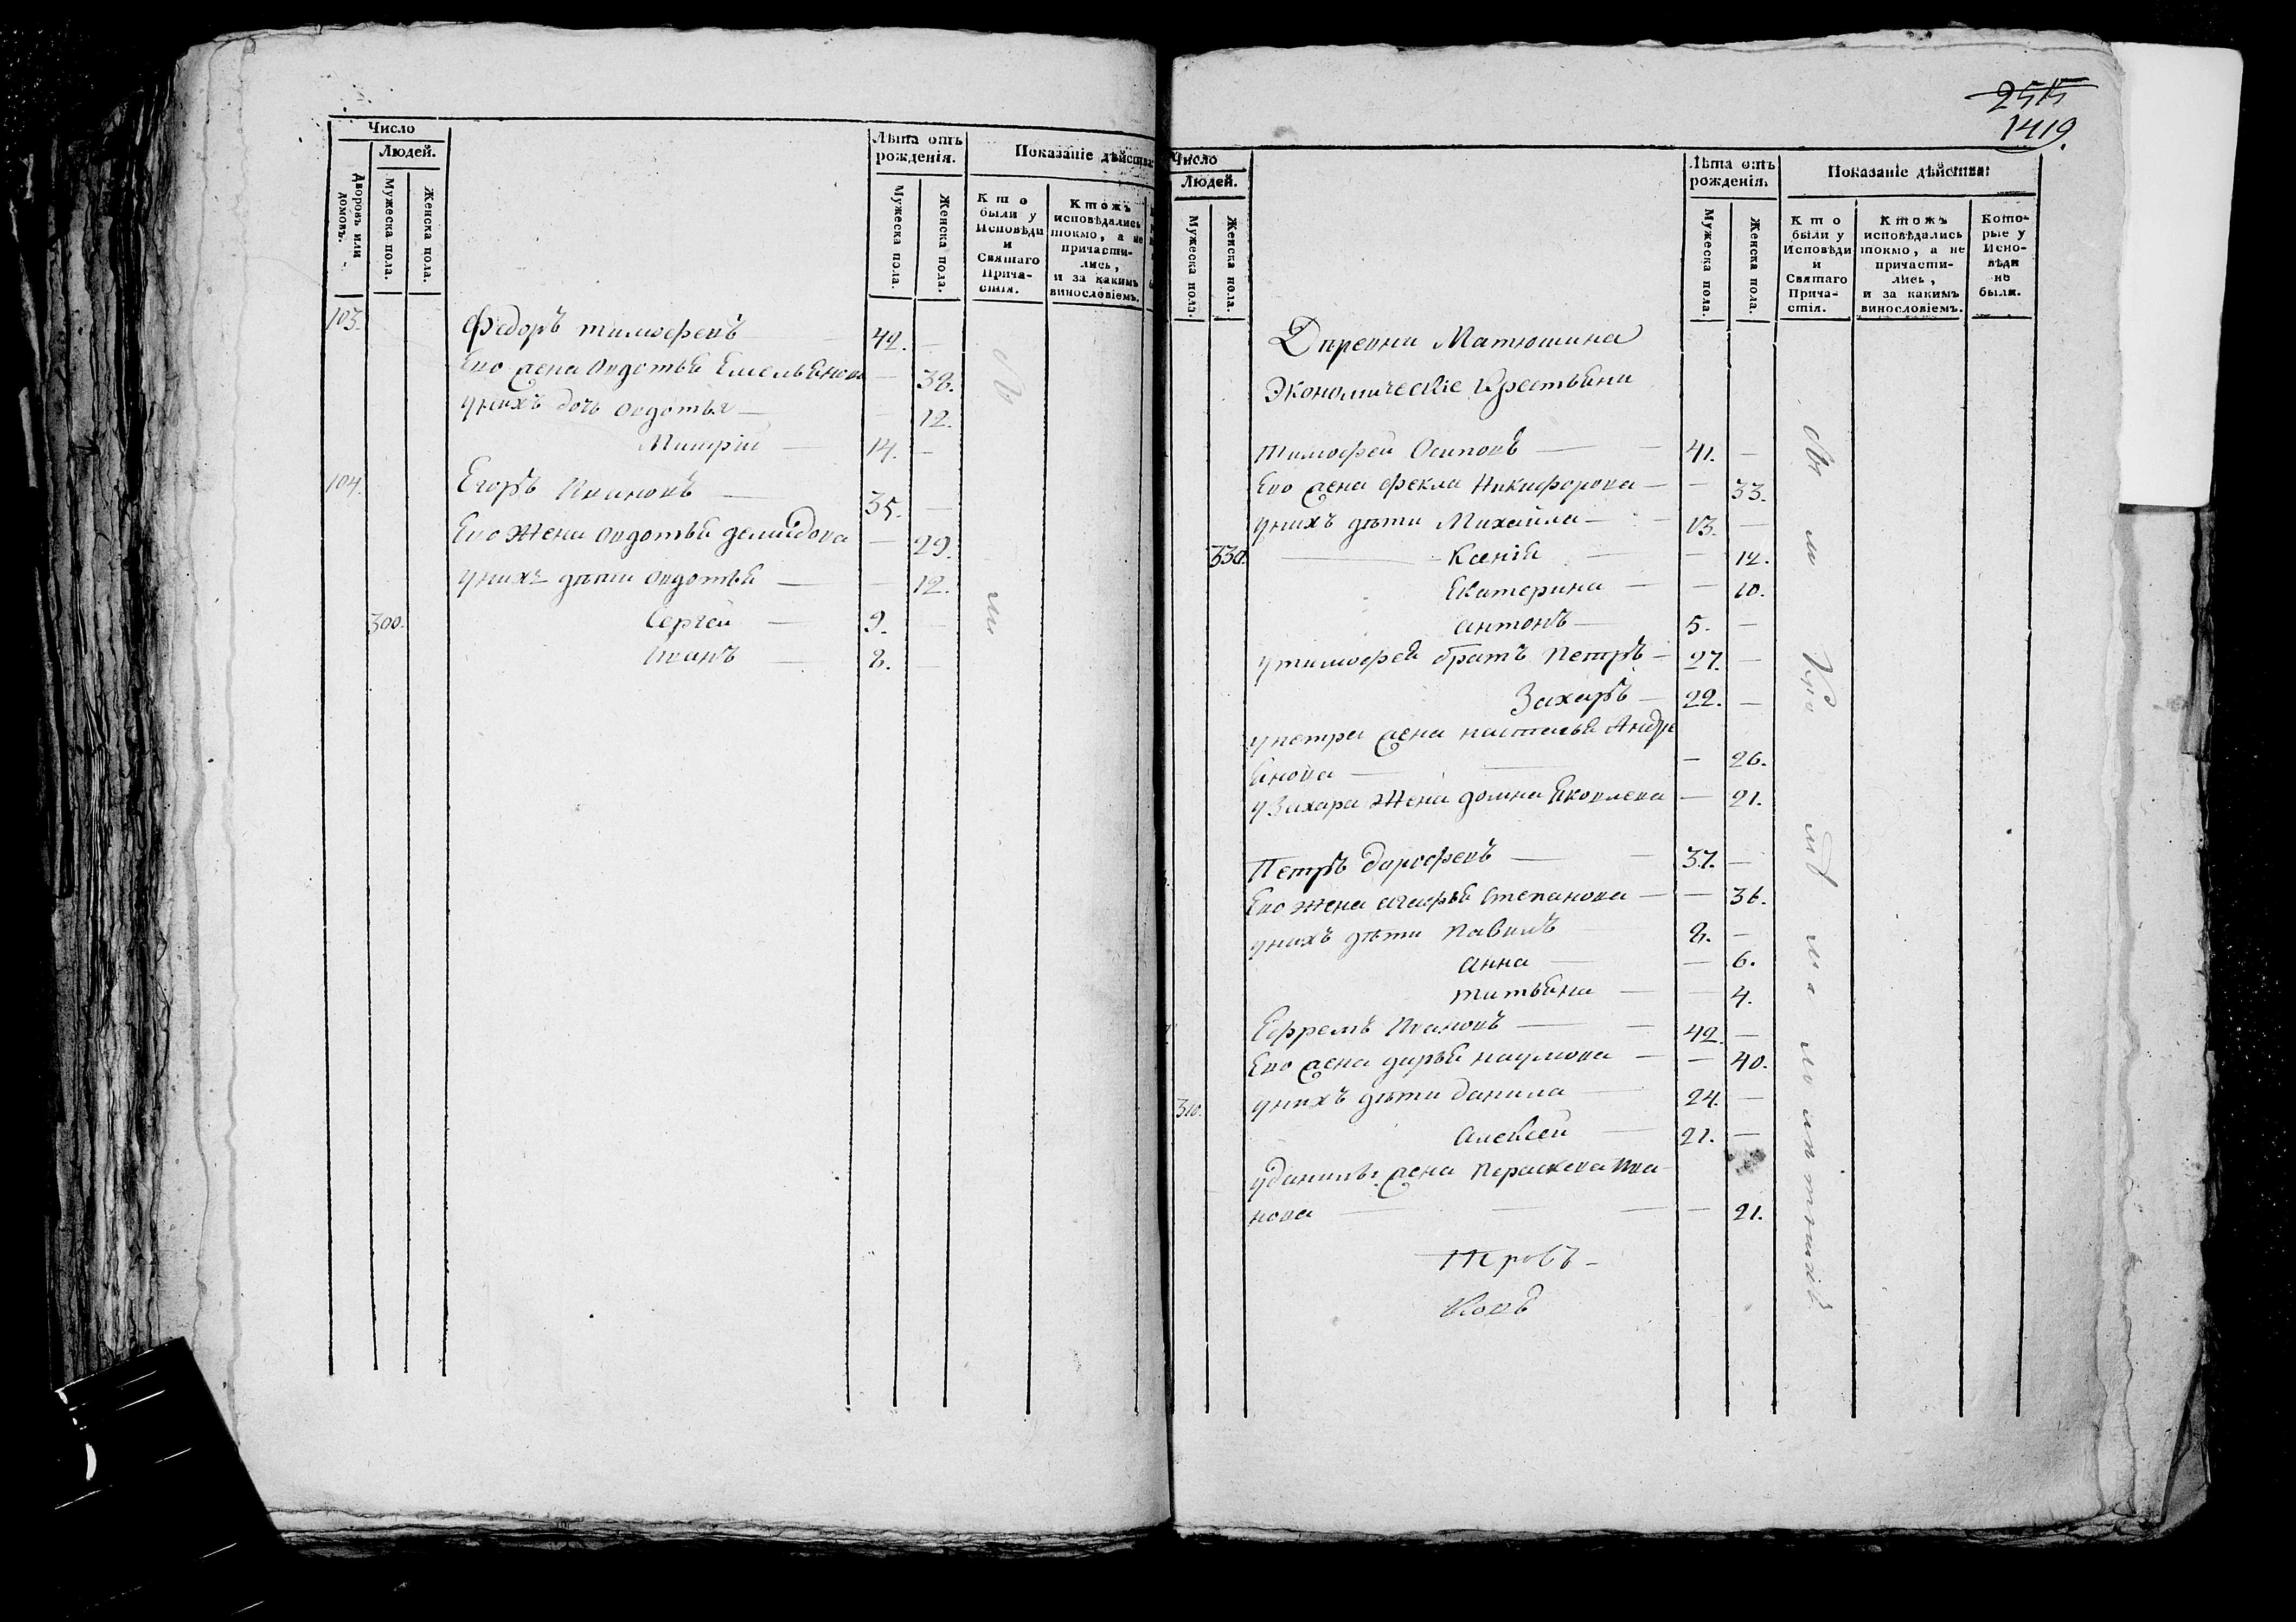 Число
Людей.
Дворовъ или домовъ.
Мужеска пола.
Женска пола.
Лѣта отъ рожденія.
Мужеска пола.
Женска пола.
Показаніе дѣйства
Кто были у Исповѣди и Святаго Прича-стія.
Ктожъ исповѣдались токмо, а не причасти-лись, и за какимъ винословіемъ.
103. Федоръ тимофеевъ 42. —
Ево жена овдотья Емельянова — 38.
у нихъ дочь овдотья — — 12.
Митрій — 14. —
104. Егоръ Ивановъ — 35. —
Ево жена овдотья демидова — 29.
у нихъ дѣти овдотья — — 12.
300. Сергей — 9. —
Иванъ — 8. —
2515
1419.
Число
Людей.
Мужеска пола.
Женска пола.
Лѣта отъ рожденія.
Мужеска пола.
Женска пола.
Показаніе дѣйства:
Кто были у Исповѣди и Святаго Прича-стія.
Ктожъ исповѣдались токмо, а не причасти-лись, и за какимъ винословіемъ.
Кото-рые у Испо-вѣди не были.
Деревни Матюшина
Экономическіе крестьяни
тимофей Осиповъ — 41. —
Ево жена фекла Никифорова — — 33.
у нихъ дѣти Михайла — 13. —
330. Ксенія — — 12.
Екатерина — — 10.
антонъ — 5. —
у тимофея братъ Петръ — 27. —
Захаръ — 22. —
у петра жена настасья Андре
янова — — 26.
у Захара жена домна Яковлева — 21.
Петръ дарофеевъ — 37. —
Ево жена агафья степанова — — 36.
у нихъ дѣти Павилъ 8. —
анна — — 6.
татьяна — — 4.
Ефремъ Ивановъ — 42. —
Ево жена дарья наумова — — 40.
310. у нихъ дѣти данила — 24. —
алексей — 21. —
у данилы жена Параскева Ива-
нова — — 21.